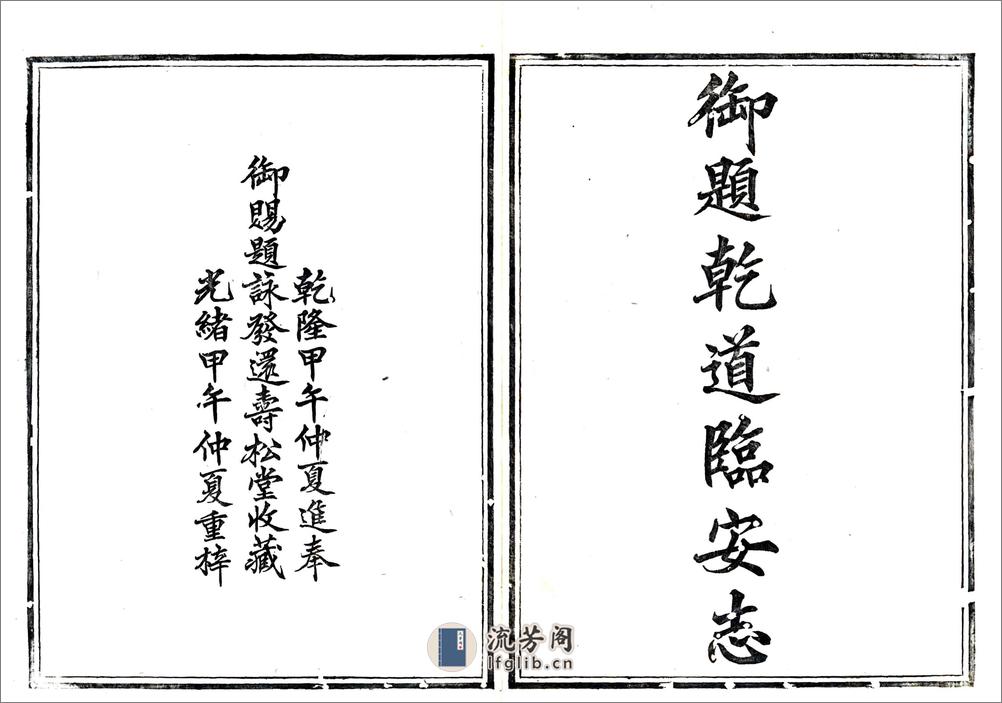 御題乾道臨安志
乾隆甲午仲夏進奉
御賜題詠發還壽松堂收藏
光緒甲午仲夏重梓
流芳阁
lfglib.cn